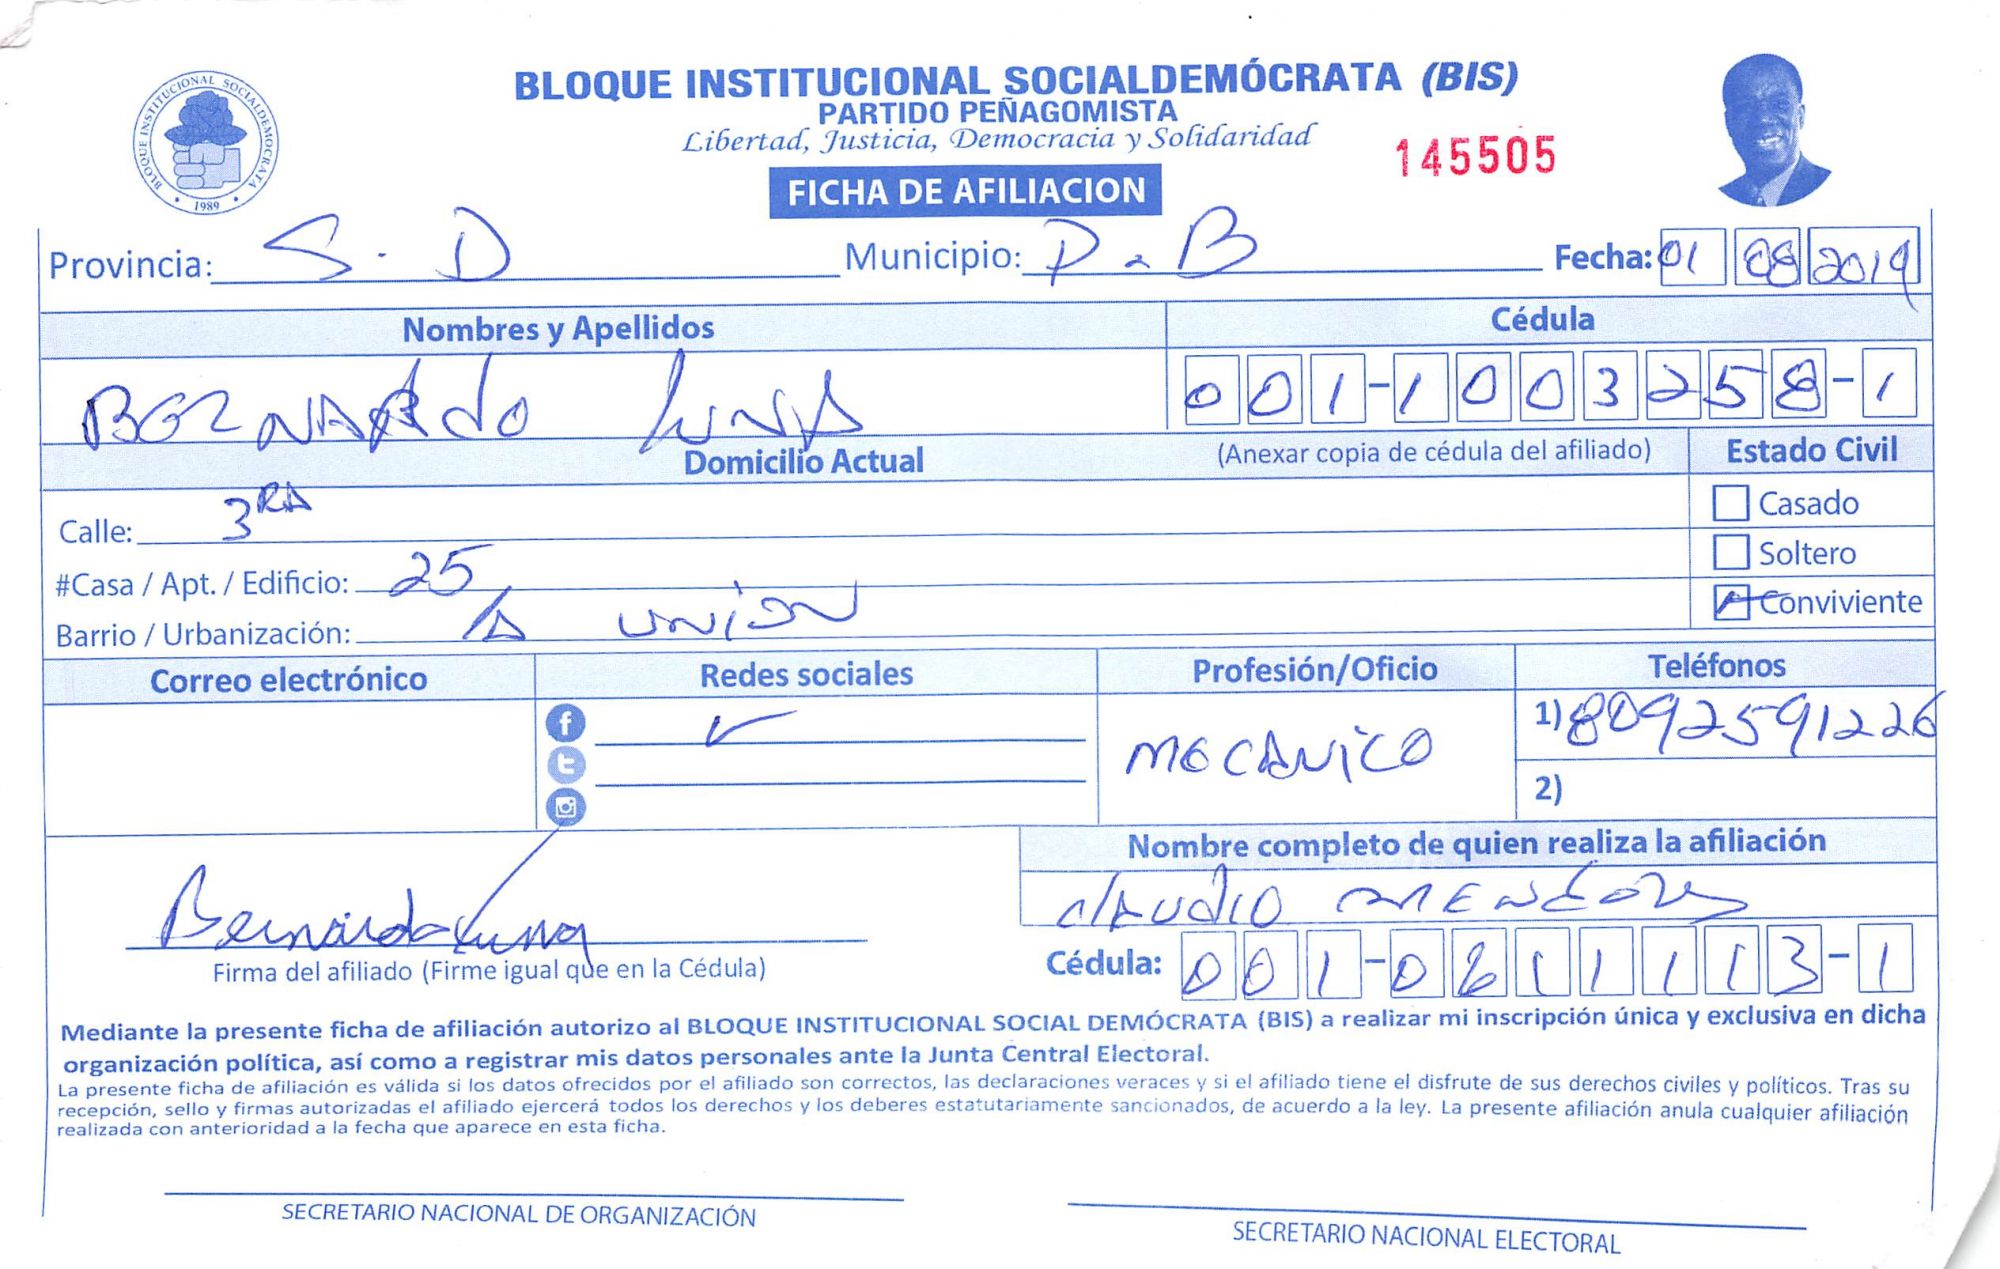 BLOQUE INSTITUCIONAL SOCIALDEMÓCRATA (BIS)
PARTIDO PEÑAGOMISTA
Libertad, Justicia, Democracia y Solidaridad
145505
FICHA DE AFILIACION
BLOQUE INSTITUCIONAL SOCIALDEMOCRATA
1989
Provincia: S. D Municipio: P. B Fecha: 01 08 2019
Nombres y Apellidos Cédula
BERNARDO LUNA 001-1003258-1
Domicilio Actual (Anexar copia de cédula del afiliado) Estado Civil
Calle: 3RA Casado
#Casa / Apt. / Edificio: 25 Soltero
Barrio / Urbanización: LA UNiON Conviviente
Correo electrónico Redes sociales Profesión/Oficio Teléfonos
MECANiCO 1) 8092591226
2)
Nombre completo de quien realiza la afiliación
Bernardo Luna clAudio MENdOZA
Firma del afiliado (Firme igual que en la Cédula) Cédula: 001-0611113-1
Mediante la presente ficha de afiliación autorizo al BLOQUE INSTITUCIONAL SOCIAL DEMÓCRATA (BIS) a realizar mi inscripción única y exclusiva en dicha
organización política, así como a registrar mis datos personales ante la Junta Central Electoral.
La presente ficha de afiliación es válida si los datos ofrecidos por el afiliado son correctos, las declaraciones veraces y si el afiliado tiene el disfrute de sus derechos civiles y políticos. Tras su
recepción, sello y firmas autorizadas el afiliado ejercerá todos los derechos y los deberes estatutariamente sancionados, de acuerdo a la ley. La presente afiliación anula cualquier afiliación
realizada con anterioridad a la fecha que aparece en esta ficha.
SECRETARIO NACIONAL DE ORGANIZACIÓN
SECRETARIO NACIONAL ELECTORAL